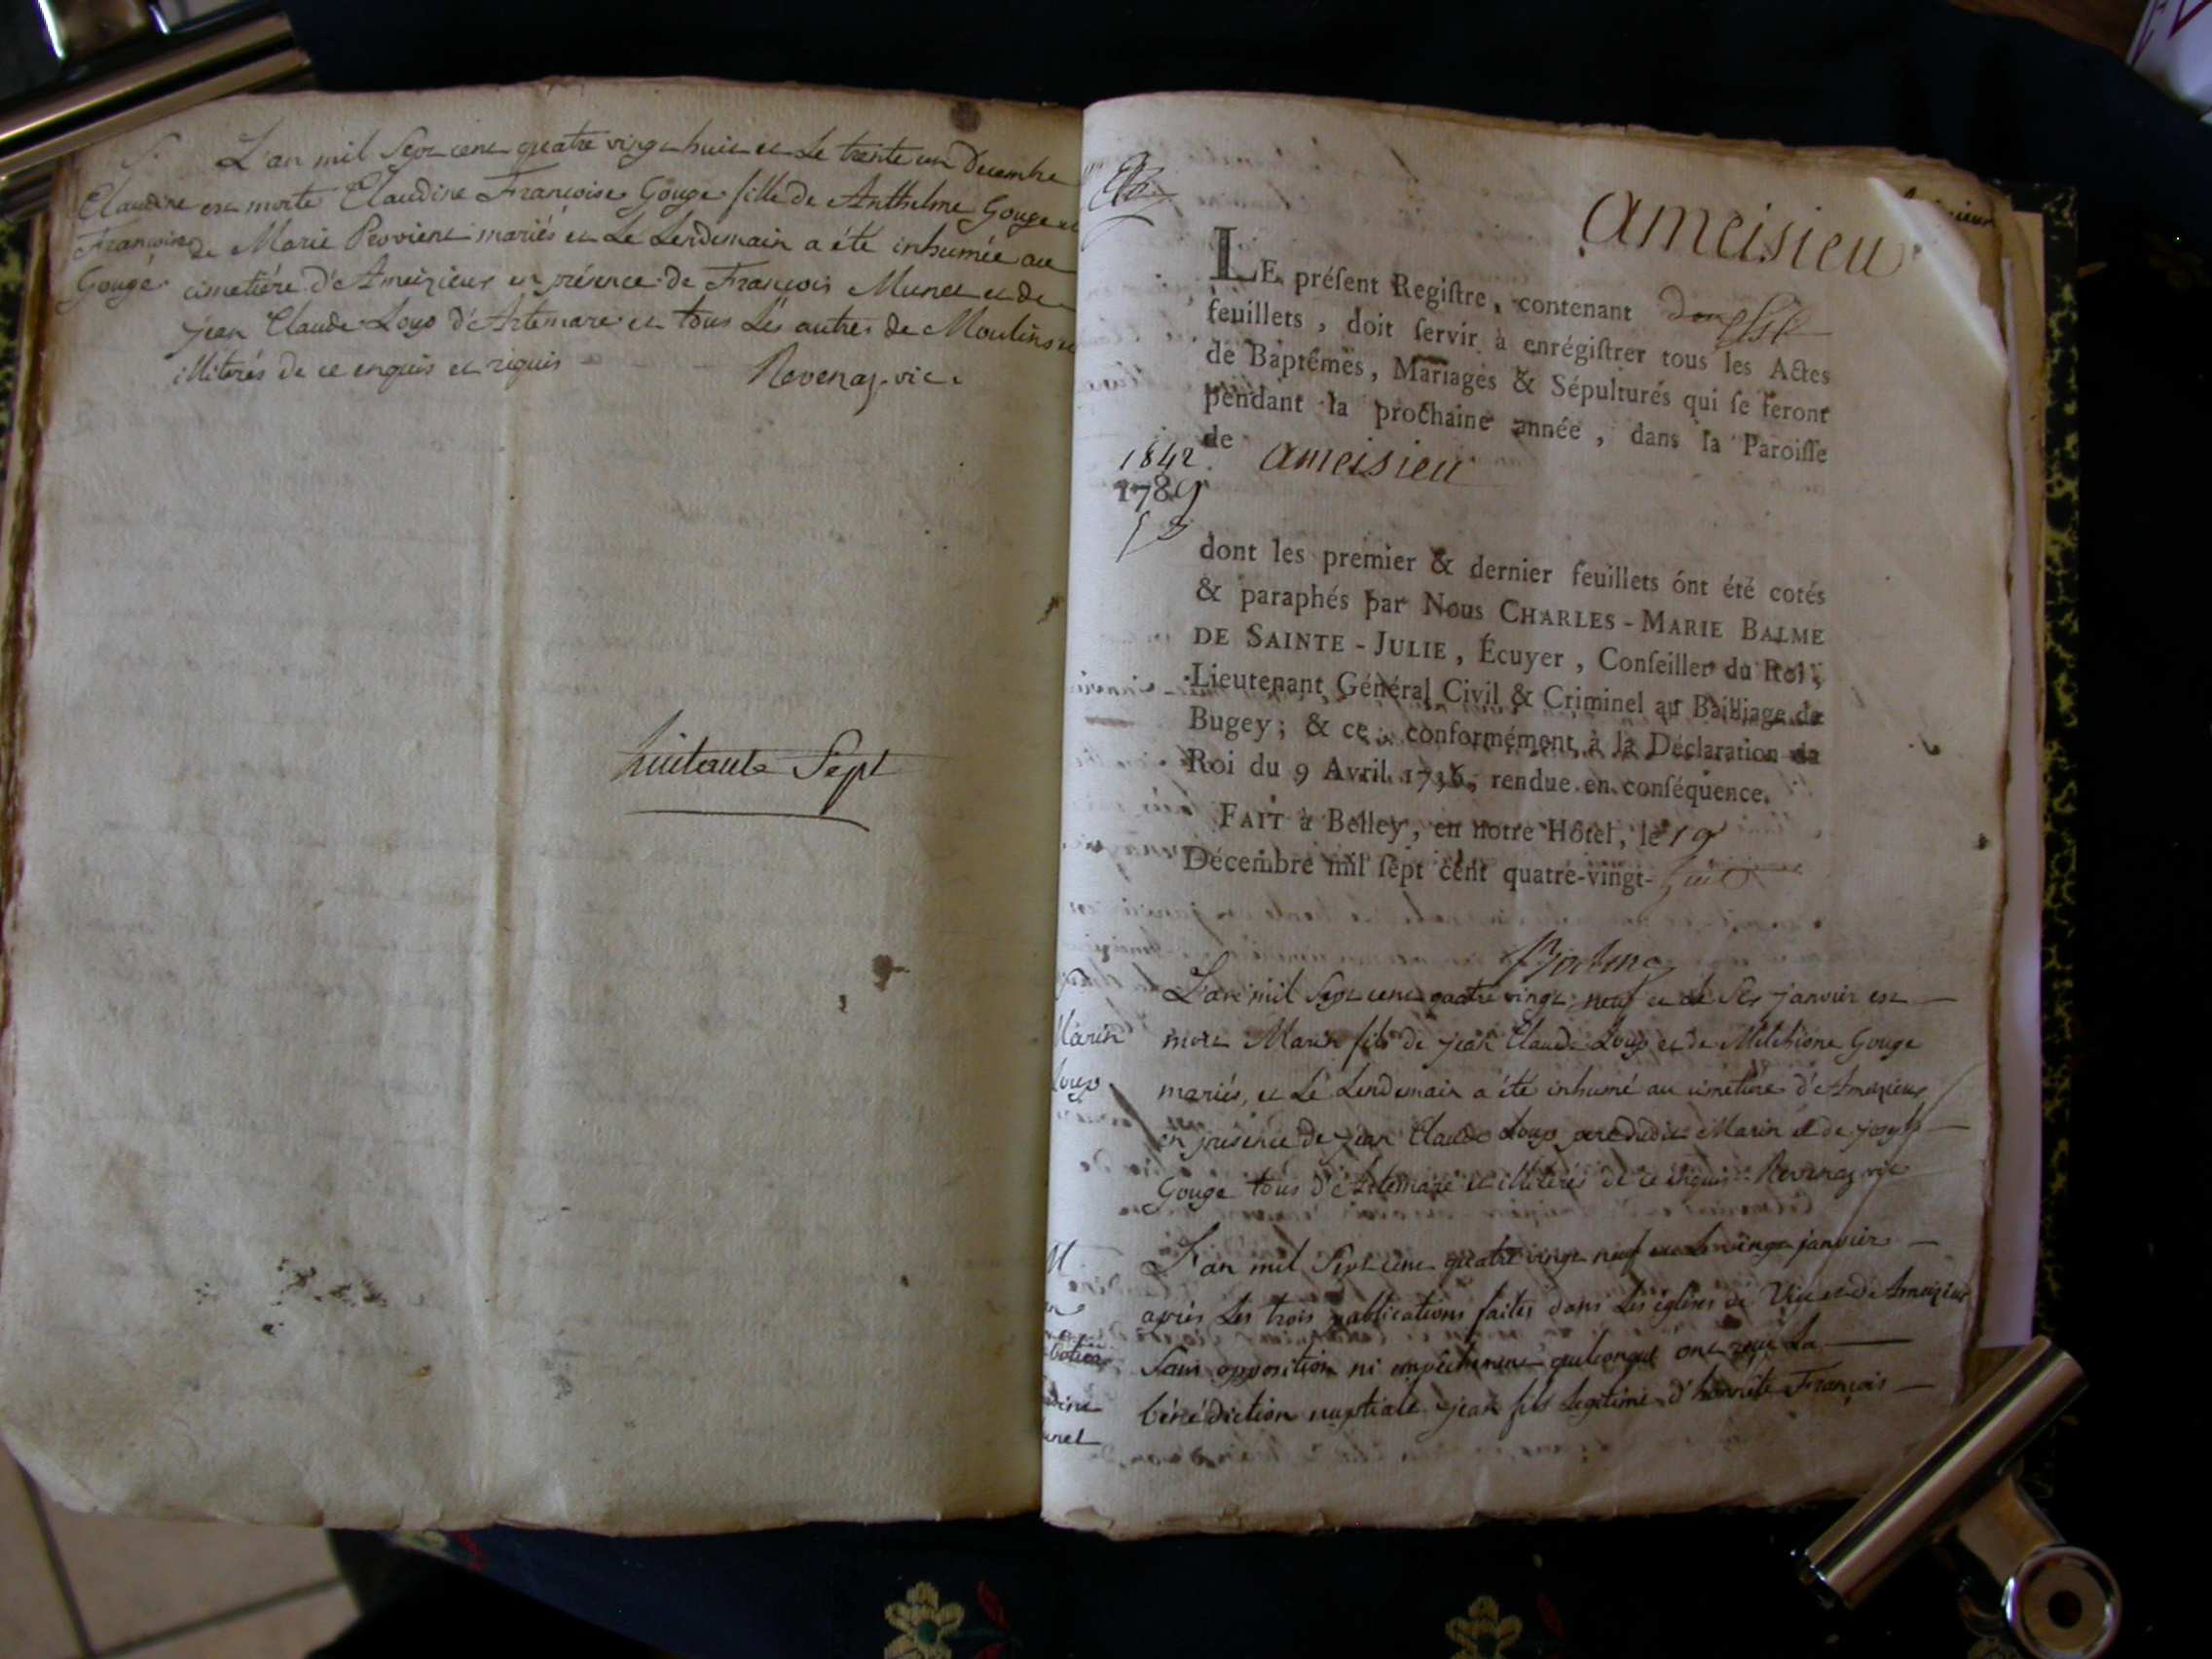 S.
L'an mil Sept cent quatre vingt huit et Le trente un Decembre
Claudine
est morte Claudine Francoise Gouge fille de Anthelme Gouge et
Francoise
de Marie Provient mariés et Le Lendemain a été inhumée au
Gouge
cimetiére d'Ameizieux en présence de François Munet et de
jean Claude Loup d'Artemare et tous Les autres de Moulins
illiterés de ce enquis et requis
Revenaz vic.
huitante Sept
ameisieu
LE préſent Regiſtre, contenant
feuillets, doit ſervir à enrégiſtrer tous les Actes
de Baptêmes, Mariages & Sépultures qui ſe feront
pendant la prochaine année, dans la Paroiſſe
de ameisieu
1842
1789
dont les premier & dernier feuillets ont été cotés
& paraphés par Nous CHARLES-MARIE BALME
DE SAINTE-JULIE, Écuyer, Conſeiller du Roi,
Lieutenant Général Civil & Criminel au Bailliage de
Bugey; & ce conformément à la Déclaration du
Roi du 9 Avril 1736, rendue en conſéquence.
FAIT à Belley, en notre Hôtel, le 19
Décembre mil ſept cent quatre-vingt-huit
Balme
L'an mil Sept cent quatre vingt neuf et le Six janvier est
Marin
mort Marin fils de jean Claude Loup et de Mélchione Gouge
Loup
mariés, et Le Lendemain a été inhumé au cimetiere d'Ameizieux
en présence de jean Claude Loup pere dudit Marin et de joseph
Gouge tous d'Artemare et illiterés de ce enquis Revenaz vic
M
L'an mil Sept cent quatre vingt neuf et Le vingt janvier
après Les trois publications faites dans Les églises de Vieu et de Ameizieux
Sans opposition ni empêchement quelconque ont reçu La
bénédiction nuptiale jean fils Legitime d'honnête François